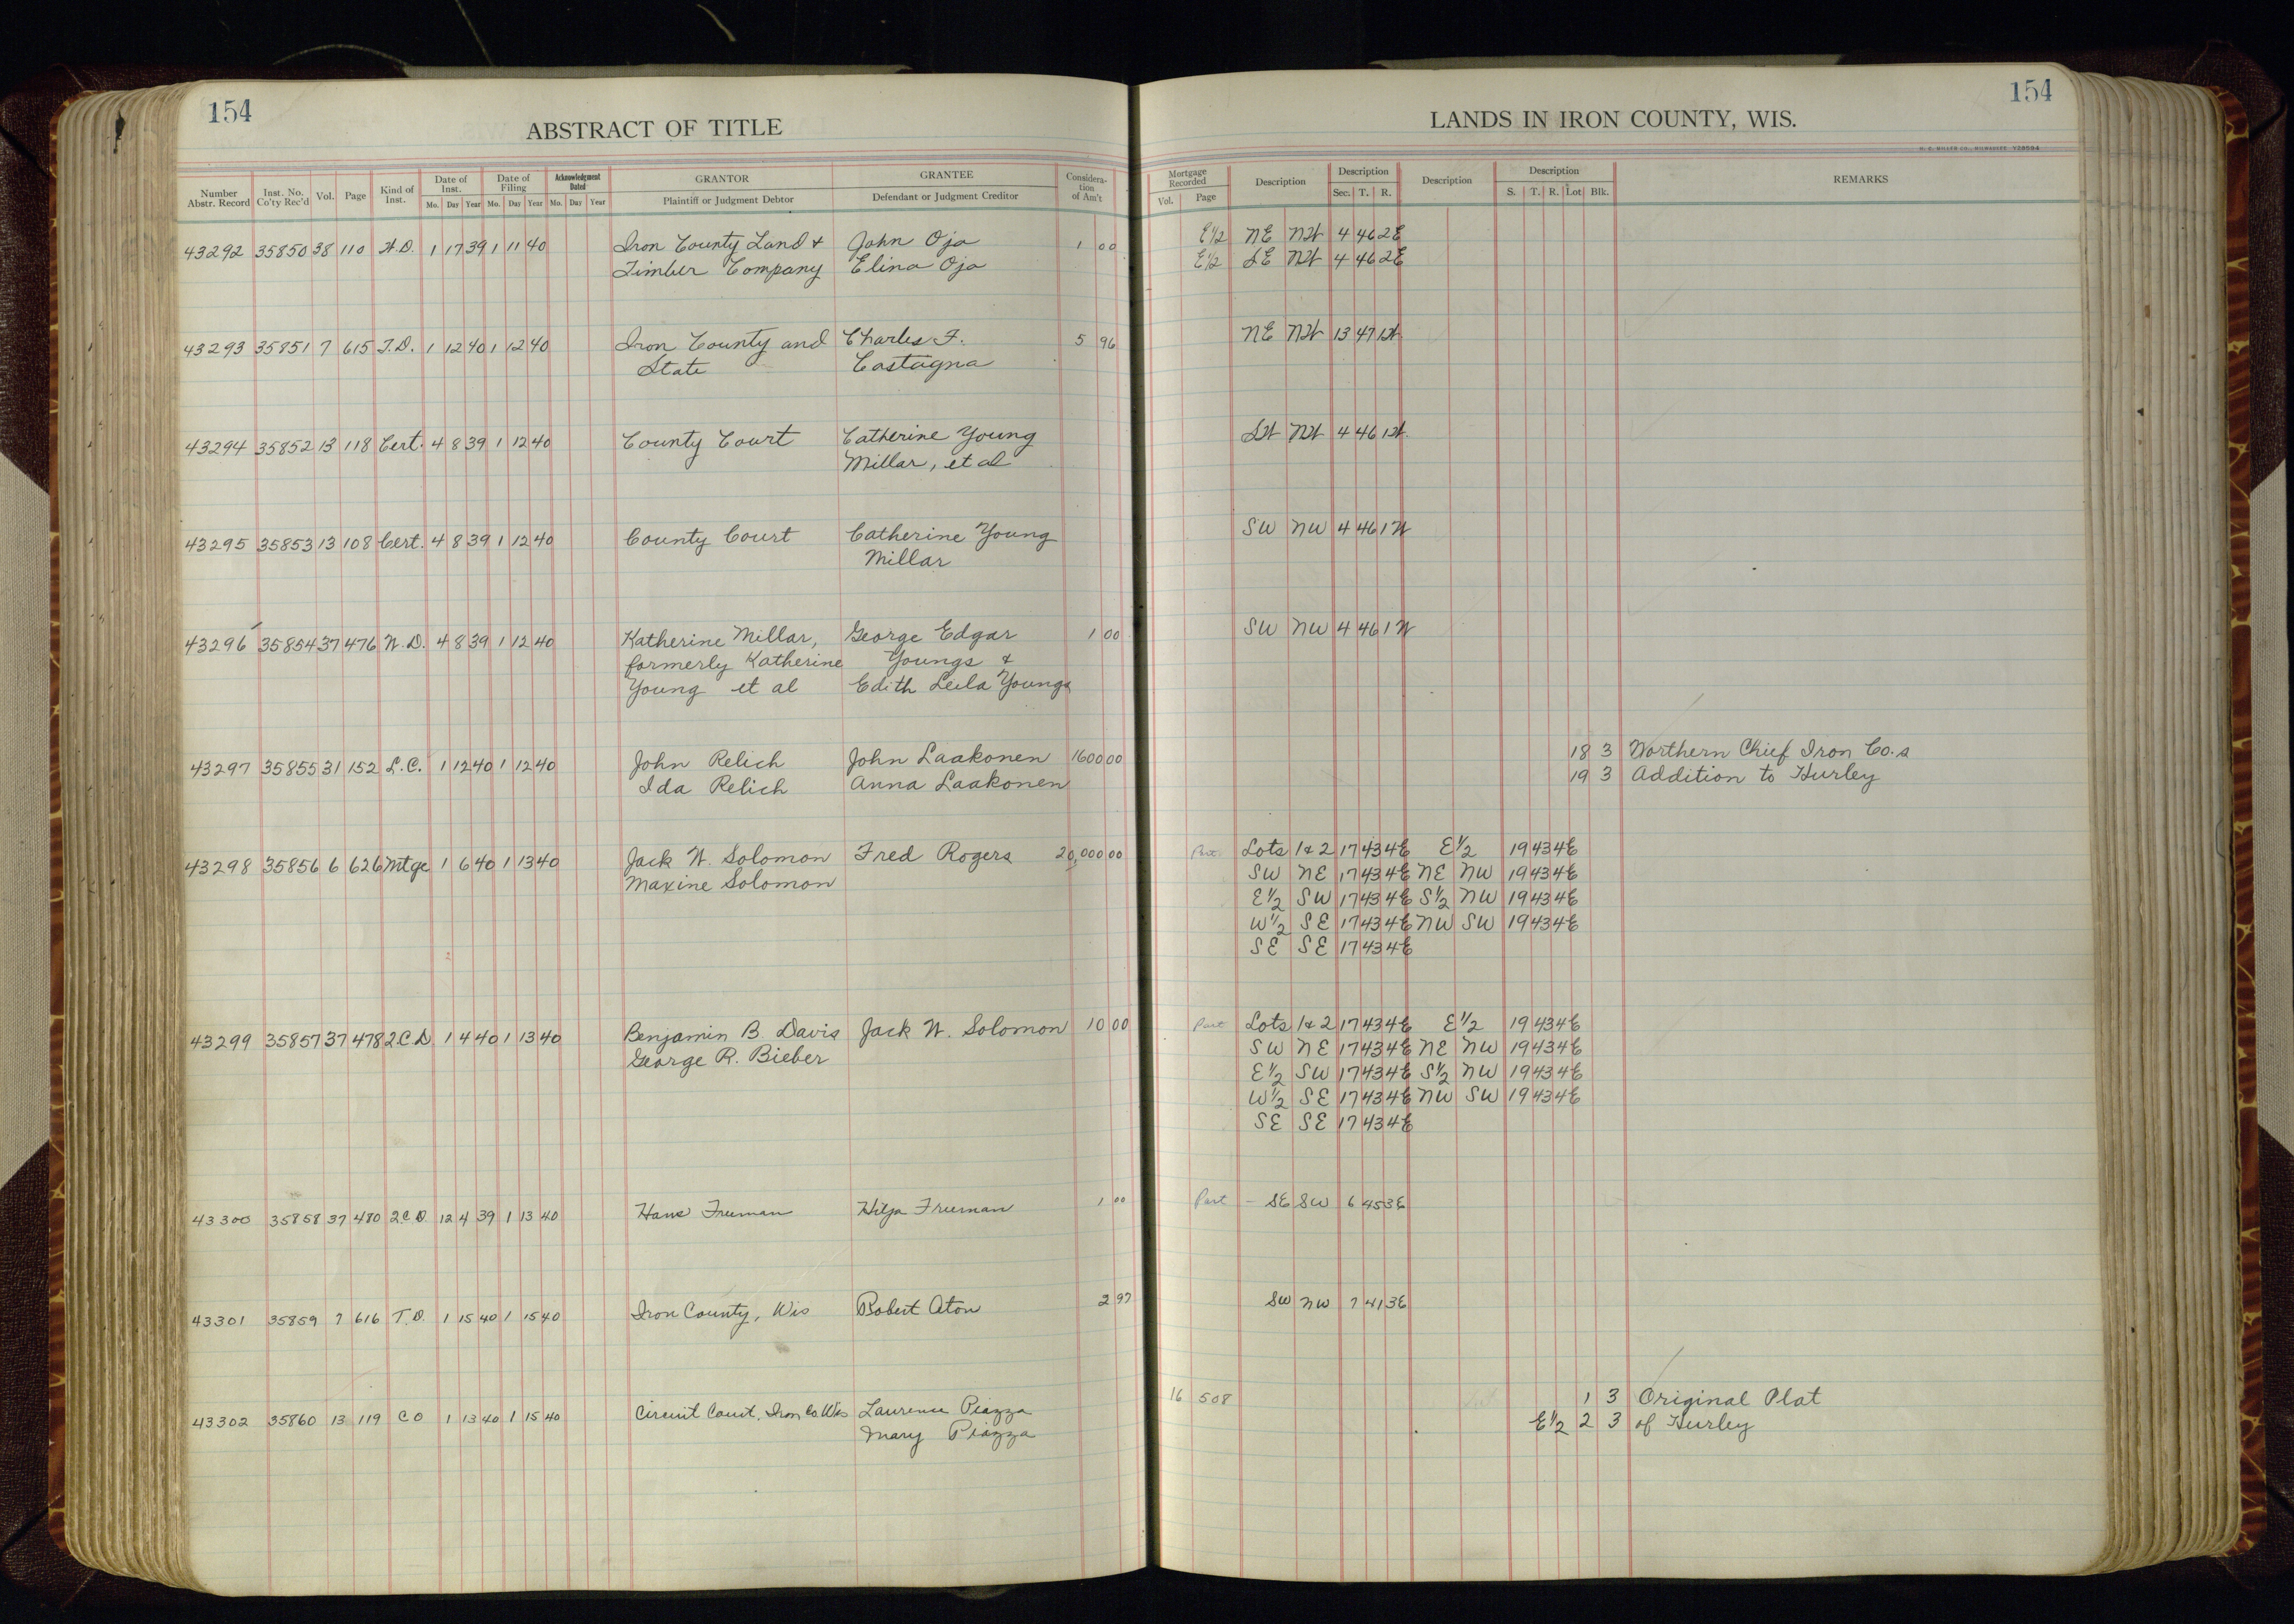 154
ABSTRACT OF TITLE
Number Abstr. Record Inst. No. Co'ty Rec'd Vol. Page Kind of Inst. Date of Inst. Mo. Day Year Date of Filing Mo. Day Year Acknowledgment Dated Mo. Day Year GRANTOR Plaintiff or Judgment Debtor GRANTEE Defendant or Judgment Creditor Considera- tion of Am't
43292 35850 38 110 W.D. 1 17 39 1 11 40 Iron County Land & John Oja 1 00
Timber Company Elina Oja
43293 35851 7 615 T.D. 1 12 40 1 12 40 Iron County and Charles F. 5 96
State Castagna
43294 35852 13 118 Cert. 4 8 39 1 12 40 County Court Catherine Young
Millar, et al
43295 35853 13 108 Cert. 4 8 39 1 12 40 County Court Catherine Young
Millar
43296 35854 37 476 W.D. 4 8 39 1 12 40 Katherine Millar, George Edgar 1 00
formerly Katherine Youngs &
Young et al Edith Leila Youngs
43297 35855 31 152 L.C. 1 12 40 1 12 40 John Relich John Laakonen 1600 00
Ida Relich Anna Laakonen
43298 35856 6 626 Mtge 1 6 40 1 13 40 Jack W. Solomon Fred Rogers 20,000 00
Maxine Solomon
43299 35857 37 478 2.C.D 1 4 40 1 13 40 Benjamin B. Davis Jack W. Solomon 10 00
George R. Bieber
43300 35858 37 480 2.C.D 12 4 39 1 13 40 Hans Freeman Hilja Freeman 1 00
43301 35859 7 616 T.D. 1 15 40 1 15 40 Iron County, Wis Robert Aton 2 97
43302 35860 13 119 C O 1 13 40 1 15 40 Circuit Court, Iron Co. Wis Laurence Piazza
Mary Piazza
154
LANDS IN IRON COUNTY, WIS.
Mortgage Recorded Vol. Page Description Description Sec. T. R. Description Description S. T. R. Lot Blk. REMARKS
E½ NE NW 4 46 2E
E½ SE NW 4 46 2E
NE NW 13 47 1W
SW NW 4 46 1W
SW NW 4 46 1W
SW NW 4 46 1W
18 3 Northern Chief Iron Co.s
19 3 Addition to Hurley
Part Lots 1&2 17 43 4E E½ 19 43 4E
SW NE 17 43 4E NE NW 19 43 4E
E½ SW 17 43 4E S½ NW 19 43 4E
W½ SE 17 43 4E NW SW 19 43 4E
SE SE 17 43 4E
Part Lots 1&2 17 43 4E E½ 19 43 4E
SW NE 17 43 4E NE NW 19 43 4E
E½ SW 17 43 4E S½ NW 19 43 4E
W½ SE 17 43 4E NW SW 19 43 4E
SE SE 17 43 4E
Part – SE SW 6 45 3E
SW NW 7 41 3E
16 508 1 3 Original Plat
E½ 2 3 of Hurley